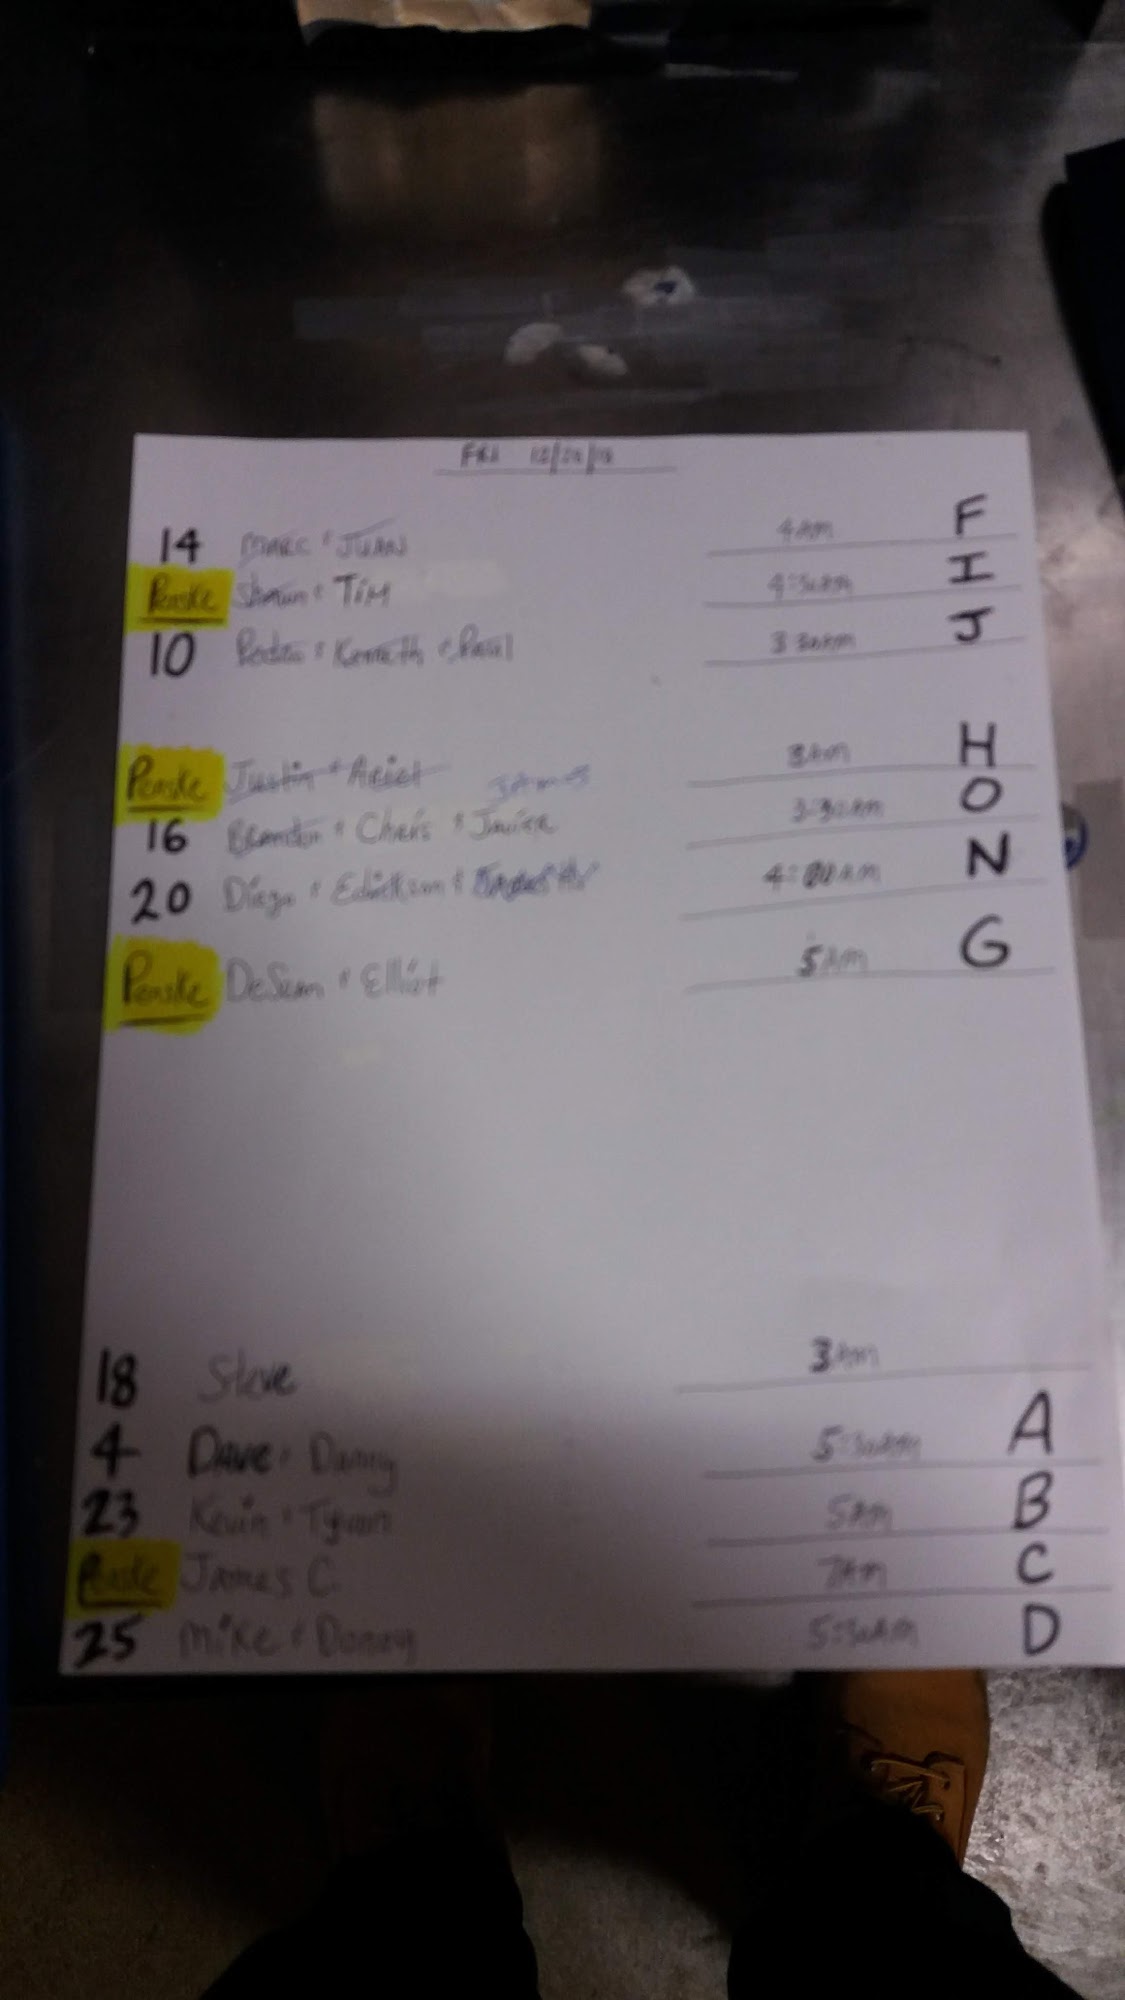 FRI
14 MARC & JUAN 4AM F
Penske Shawn & TiM 4:30AM I
10 Pedro & Kenneth & Paul 3:30AM J
Penske Justin & Ariel JAMES 3AM H
16 Brandon & Chris & Junior 3:30AM O
20 Diego & Edickson & 4:00AM N
Penske DeSean & Elliot 5AM G
18 Steve 3AM
4 DAVE & Danny 5:30AM A
23 Kevin & Tyron 5AM B
Penske James C. 7AM C
25 Mike & Donny 5:30AM D